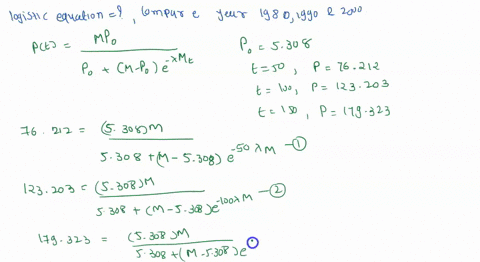 logistic equation = ? , compare year 1980, 1990 & 2000
P(t) = MP₀ / P₀ + (M-P₀) e^-λMt
P₀ = 5.308
t = 50 , P = 76.212
t = 100, P = 123.203
t = 150 , P = 179.323
76.212 = (5.308)M / 5.308 + (M - 5.308) e^-50λM — ①
123.203 = (5.308)M / 5.308 + (M - 5.308) e^-100λM — ②
179.323 = (5.308)M / 5.308 + (M - 5.308) e